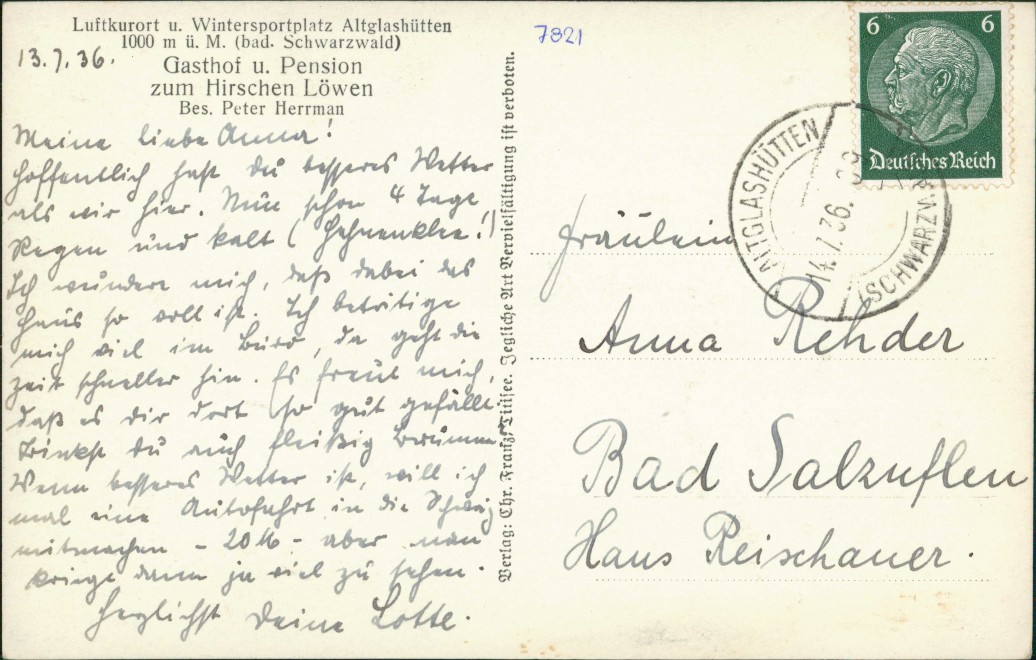 Luftkurort u. Wintersportplatz Altglashütten
1000 m ü. M. (bad. Schwarzwald)
13.7.36.
Gasthof u. Pension
zum Hirschen Löwen
Bes. Peter Herrman
Meine liebe Anna!
Hoffentlich hast du besseres Wetter
als wir hier. Nun schon 4 Tage
Regen und kalt (Hahnenklee!)
Ich wundere mich, daß dabei das
Haus so voll ist. Ich betätige
mich viel im Büro, da geht die
Zeit schneller hin. Es freut mich,
daß es dir dort so gut gefällt.
Trinkst du auch fleißig Brunnen
Wenn besseres Wetter ist, will ich
mal eine Autofahrt in die Schweiz
mitmachen - 20 M - aber man
kriegt dann ja viel zu sehen.
Herzlichst Deine Lotte.
Verlag: Chr. Franz, Titisee. Jegliche Art Vervielfältigung ist verboten.
7821
6 6
Deutsches Reich
ALTGLASHÜTTEN
14.7.36.
(SCHWARZW.
Fräulein
Anna Rehder
Bad Salzuflen
Haus Reischauer.